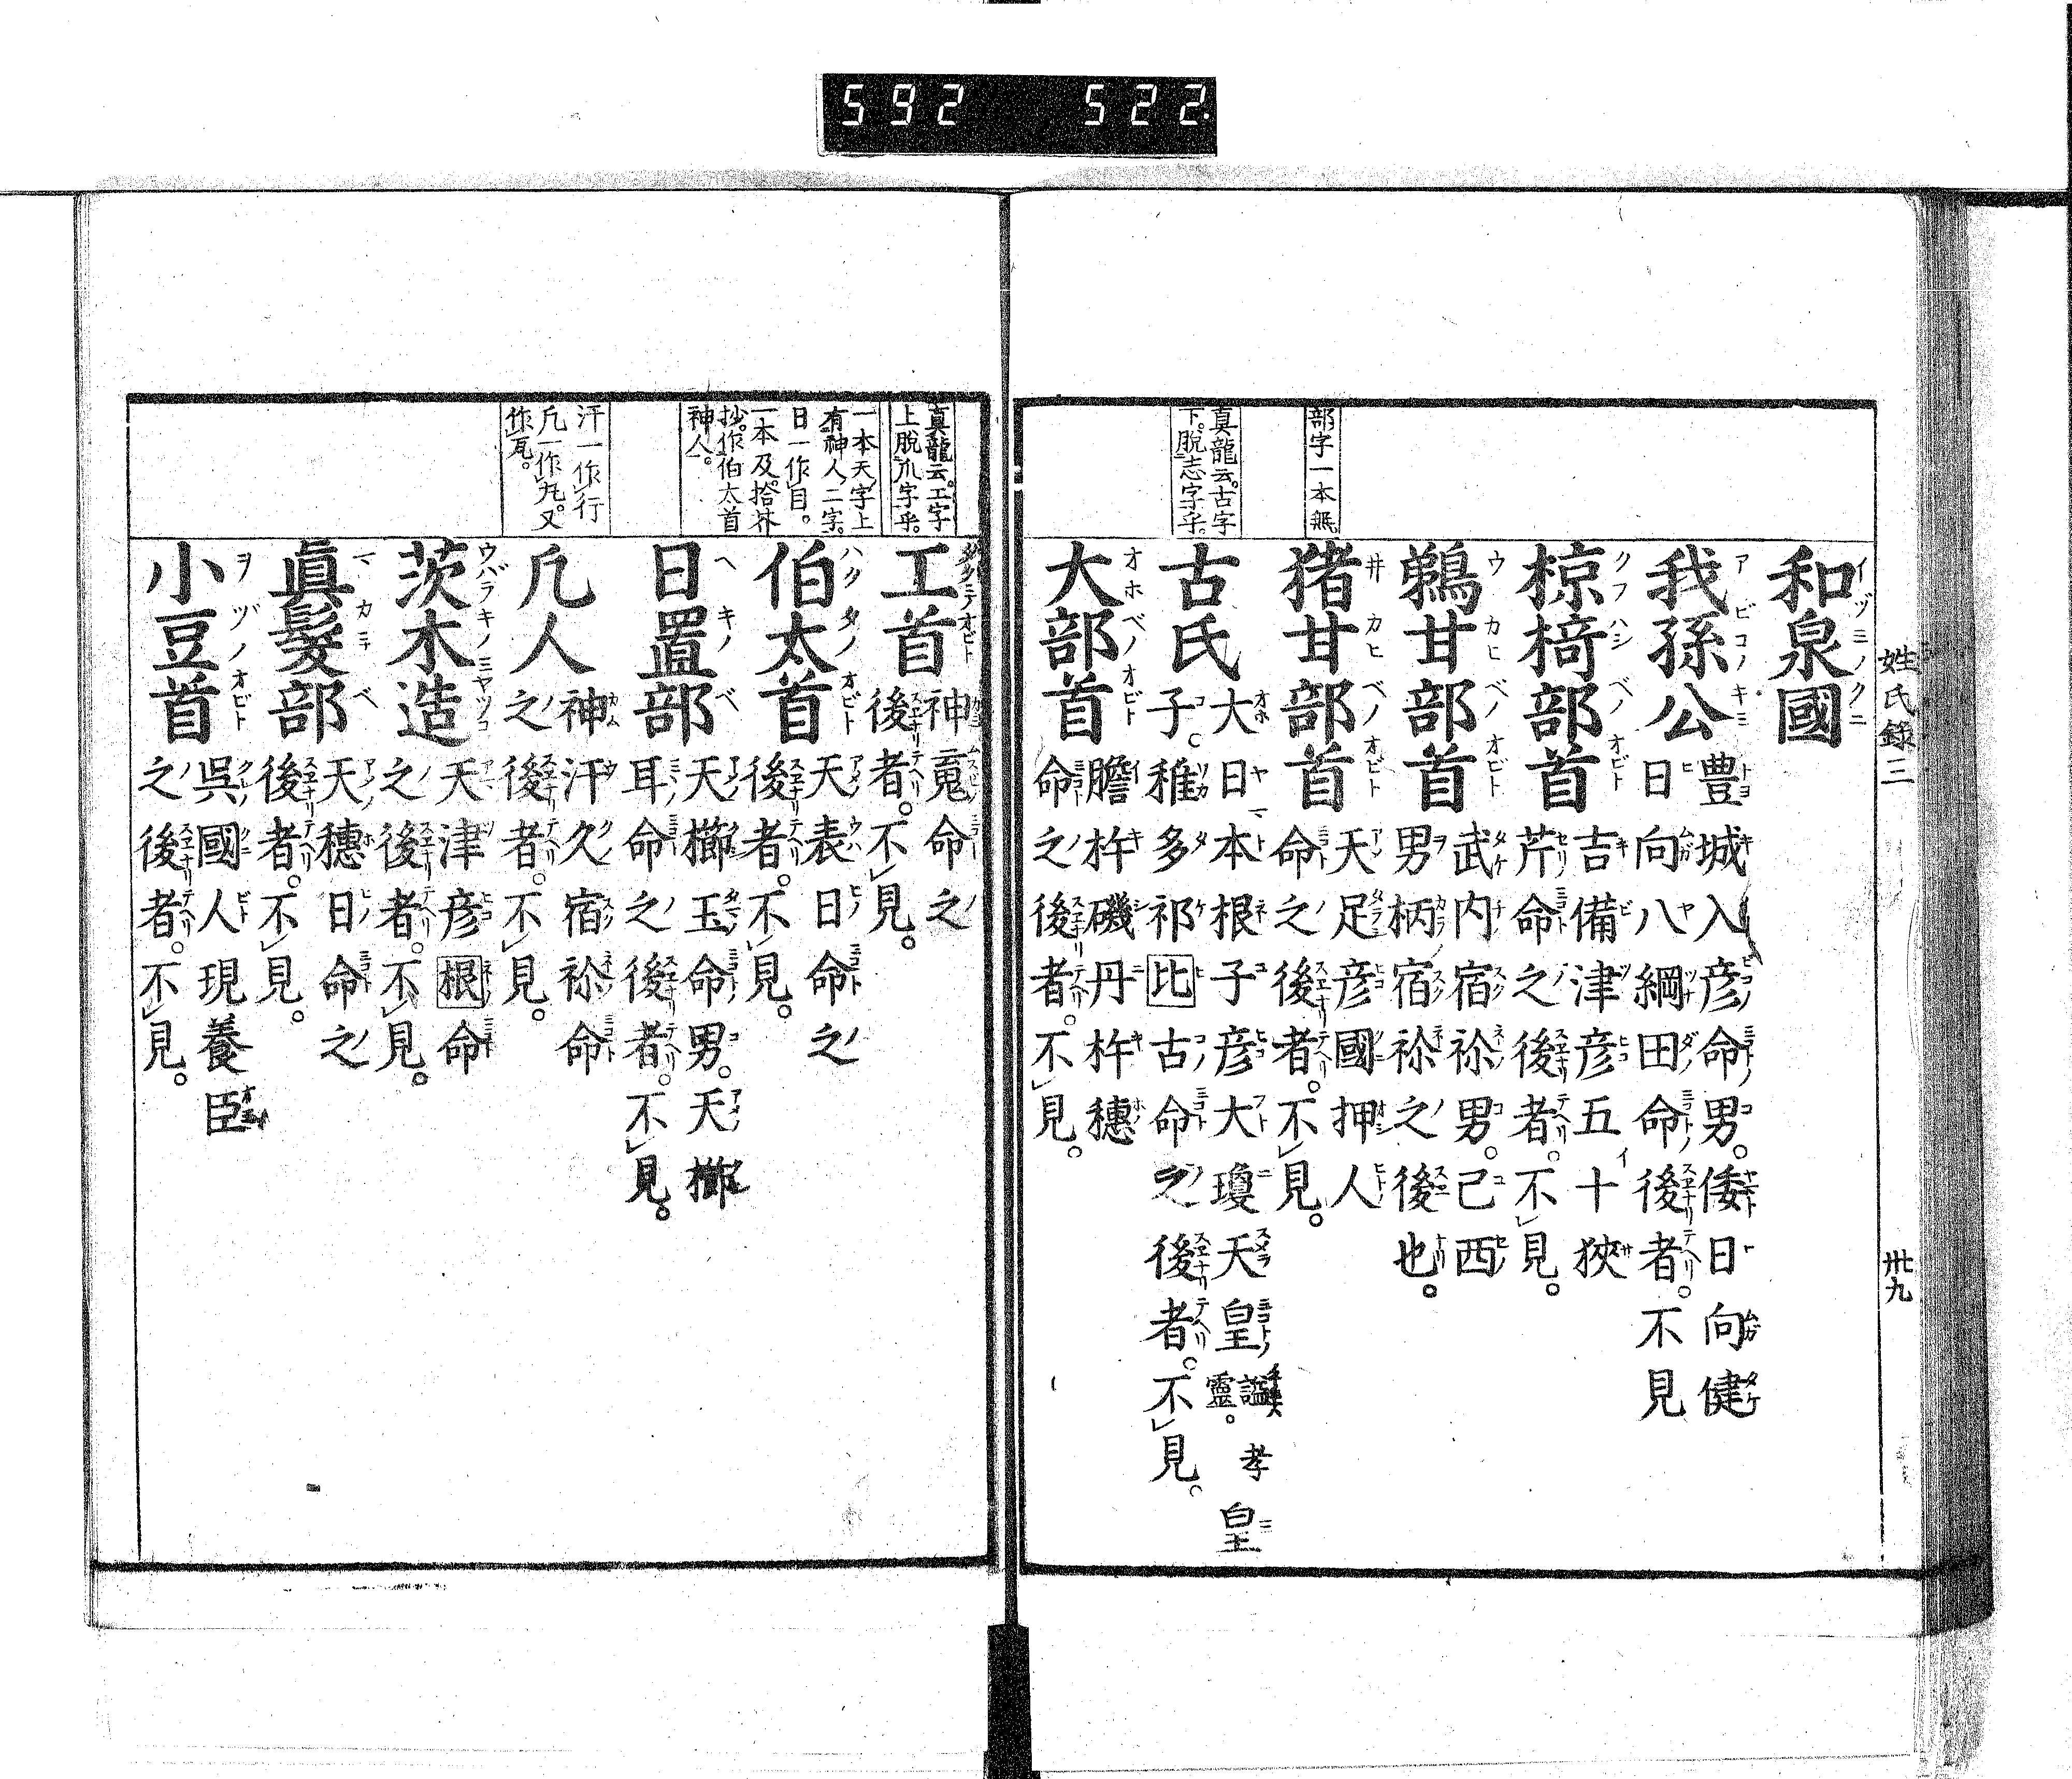 592 522
姓氏錄三
卅九
和泉國
我孫公
豊城入彦命男。倭日向健
日向八綱田命後者。不見
椋椅部首
吉備津彦五十狹
芹命之後者。不見。
鵜甘部首
武内宿祢男。己西
男柄宿祢之後也。
部字一本無
猪甘部首
天足彦國押人
命之後者。不見。
真龍云。古字
下。脱志字乎。
古氏
大日本根子彦大瓊天皇
諡孝
靈。
皇
子。稚多祁比古命之後者。不見。
大部首
膽杵磯丹杵穗
命之後者。不見。
真龍云。工字
上脱爪字乎。
工首
神䰟命之
後者。不見。
一本天字上
有神人二字。
日一作目。
一本及拾芥
抄。作伯太首
神人。
伯太首
天表日命之
後者。不見。
日置部
天櫛玉命男。天櫛
耳命之後者。不見。
汗一作行
凢一作九。又
作瓦。
凢人
神汗久宿祢命
之後者。不見。
茨木造
天津彦根命
之後者。不見。
眞髮部
天穗日命之
後者。不見。
小豆首
呉國人現養臣
之後者。不見。